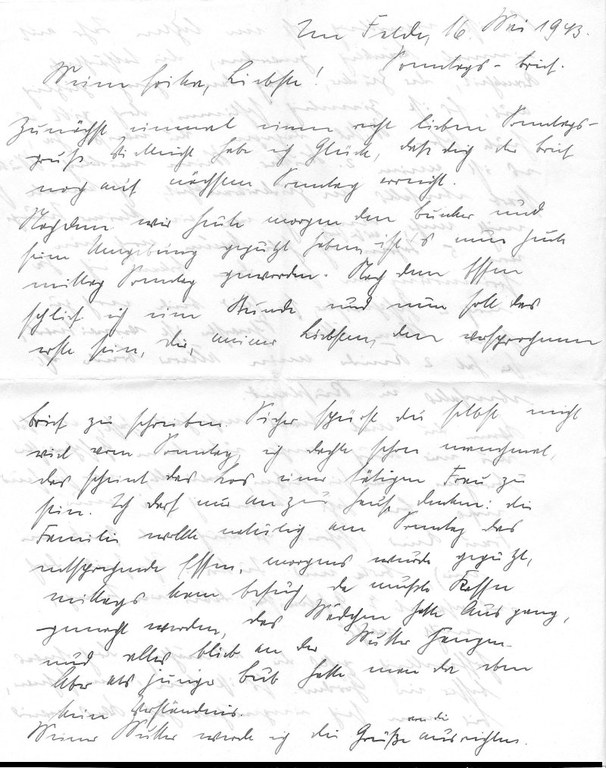 Im Felde, 16. Mai 1943.
Sonntags-brief.
Meine Liebste!
Zunächst einmal einen recht lieben Sonntags-
gruß. Vielleicht habe ich Glück, daß dich der Brief
noch auf nächsten Sonntag erreicht.
Nachdem wir heute morgen den bunker und
seine Umgebung geputzt haben, ist es nun heute
mittag Sonntag geworden. Nach dem Essen
schlief ich eine Stunde und nun soll das
erste sein, dir, meiner Liebsten, den versprochenen
brief zu schreiben. Sicher spürst du selbst nicht
viel vom Sonntag, ich dachte schon manchmal,
das scheint das Los einer tätigen Frau zu
sein. Ich darf nur an zu Hause denken: die
Familie wollte natürlich am Sonntag das
entsprechende Essen, morgens wurde geputzt,
mittags kam besuch, da mußte Kaffee
gemacht werden, das Mädchen hatte Ausgang,
und alles blieb an der Mutter hängen.
Aber als junger bub hatte man da eben
kein Verständnis.
Meiner Mutter werde ich die Grüße an die ausrichten.